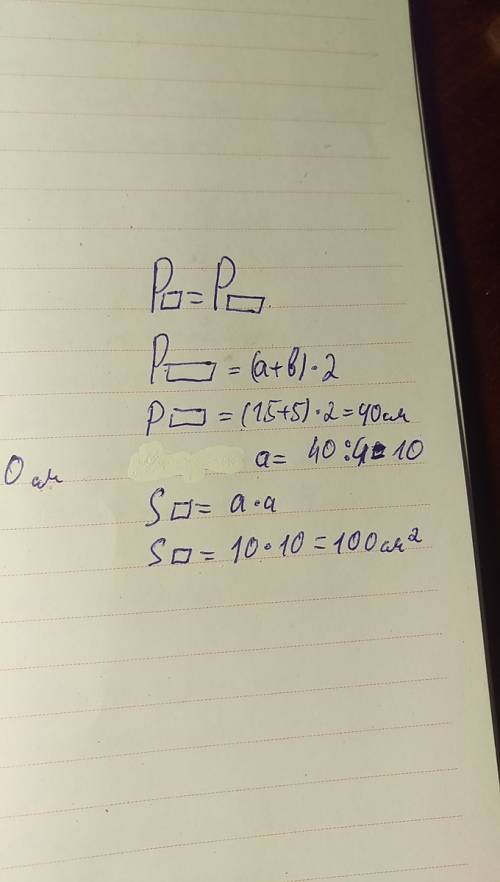 P□ = P▭
P▭ = (a+b)·2
P▭ = (15+5)·2=40см
a= 40:4=10
0 см
S□ = a·a
S□ = 10·10=100см²